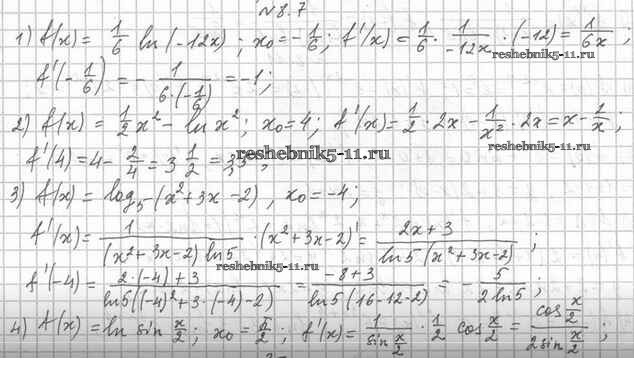 №8.7
1) f(x) = 1/6 ln(-12x); x₀ = -1/6; f'(x) = 1/6 · 1/(-12x) · (-12) = 1/(6x);
reshebnik5-11.ru
f'(-1/6) = - 1/(6·(-1/6)) = -1;
2) f(x) = 1/2 x² - ln x²; x₀ = 4; f'(x) = 1/2 · 2x - 1/x² · 2x = x - 2/x;
reshebnik5-11.ru
f'(4) = 4 - 2/4 = 3 1/2 = 3,5;
reshebnik5-11.ru
3) f(x) = log₅ (x² + 3x - 2), x₀ = -4;
f'(x) = 1/((x² + 3x - 2) ln5) · (x² + 3x - 2)' = (2x + 3)/(ln5 (x² + 3x - 2));
reshebnik5-11.ru
f'(-4) = (2·(-4) + 3)/(ln5((-4)² + 3·(-4) - 2)) = (-8 + 3)/(ln5(16 - 12 - 2)) = - 5/(2 ln5);
4) f(x) = ln sin x/2; x₀ = π/2; f'(x) = 1/(sin x/2) · 1/2 cos x/2 = (cos x/2)/(2 sin x/2);